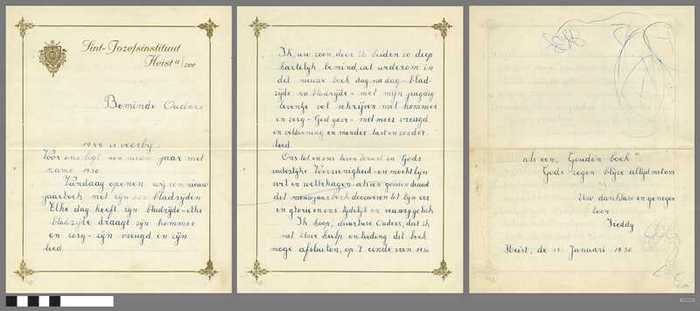 Sint-Jozefsinstituut
Heist a/zee
Beminde Ouders
is voorbij.
Voor ons ligt een nieuw jaar met
name 1950.
Vandaag openen wij een nieuw
jaarboek met zijn 365 bladzijden
Elke dag heeft zijn bladzijde - elke
bladzijde draagt zijn kommer
en zorg - zijn vreugd en zijn
leed.
Ik, uw zoon, door U beiden zo diep
hartelijk bemind, zal andermaal in
dit nieuw boek dag na dag - blad-
zijde na bladzijde - met mijn jeugdig
leventje vol schrijven met kommer
en zorg - God geve - met meer vreugd
en voldoening en minder last en zonder
leed.
Ons lot en ons leven berust in Gods
Voorzienigheid en
het nieuwjaarsboek
en glorie en ons tijdelijk en eeuwig geluk.
Ik hoop, duurbare Ouders, dat ik
met Uwe hulp en leiding dit boek
moge afsluiten, op 't einde van 1950
als een "Gouden boek"
Gods zegen blijve altijd met ons
Uw dankbare en genegen
zoon
Freddy
Heist, de Januari 1950